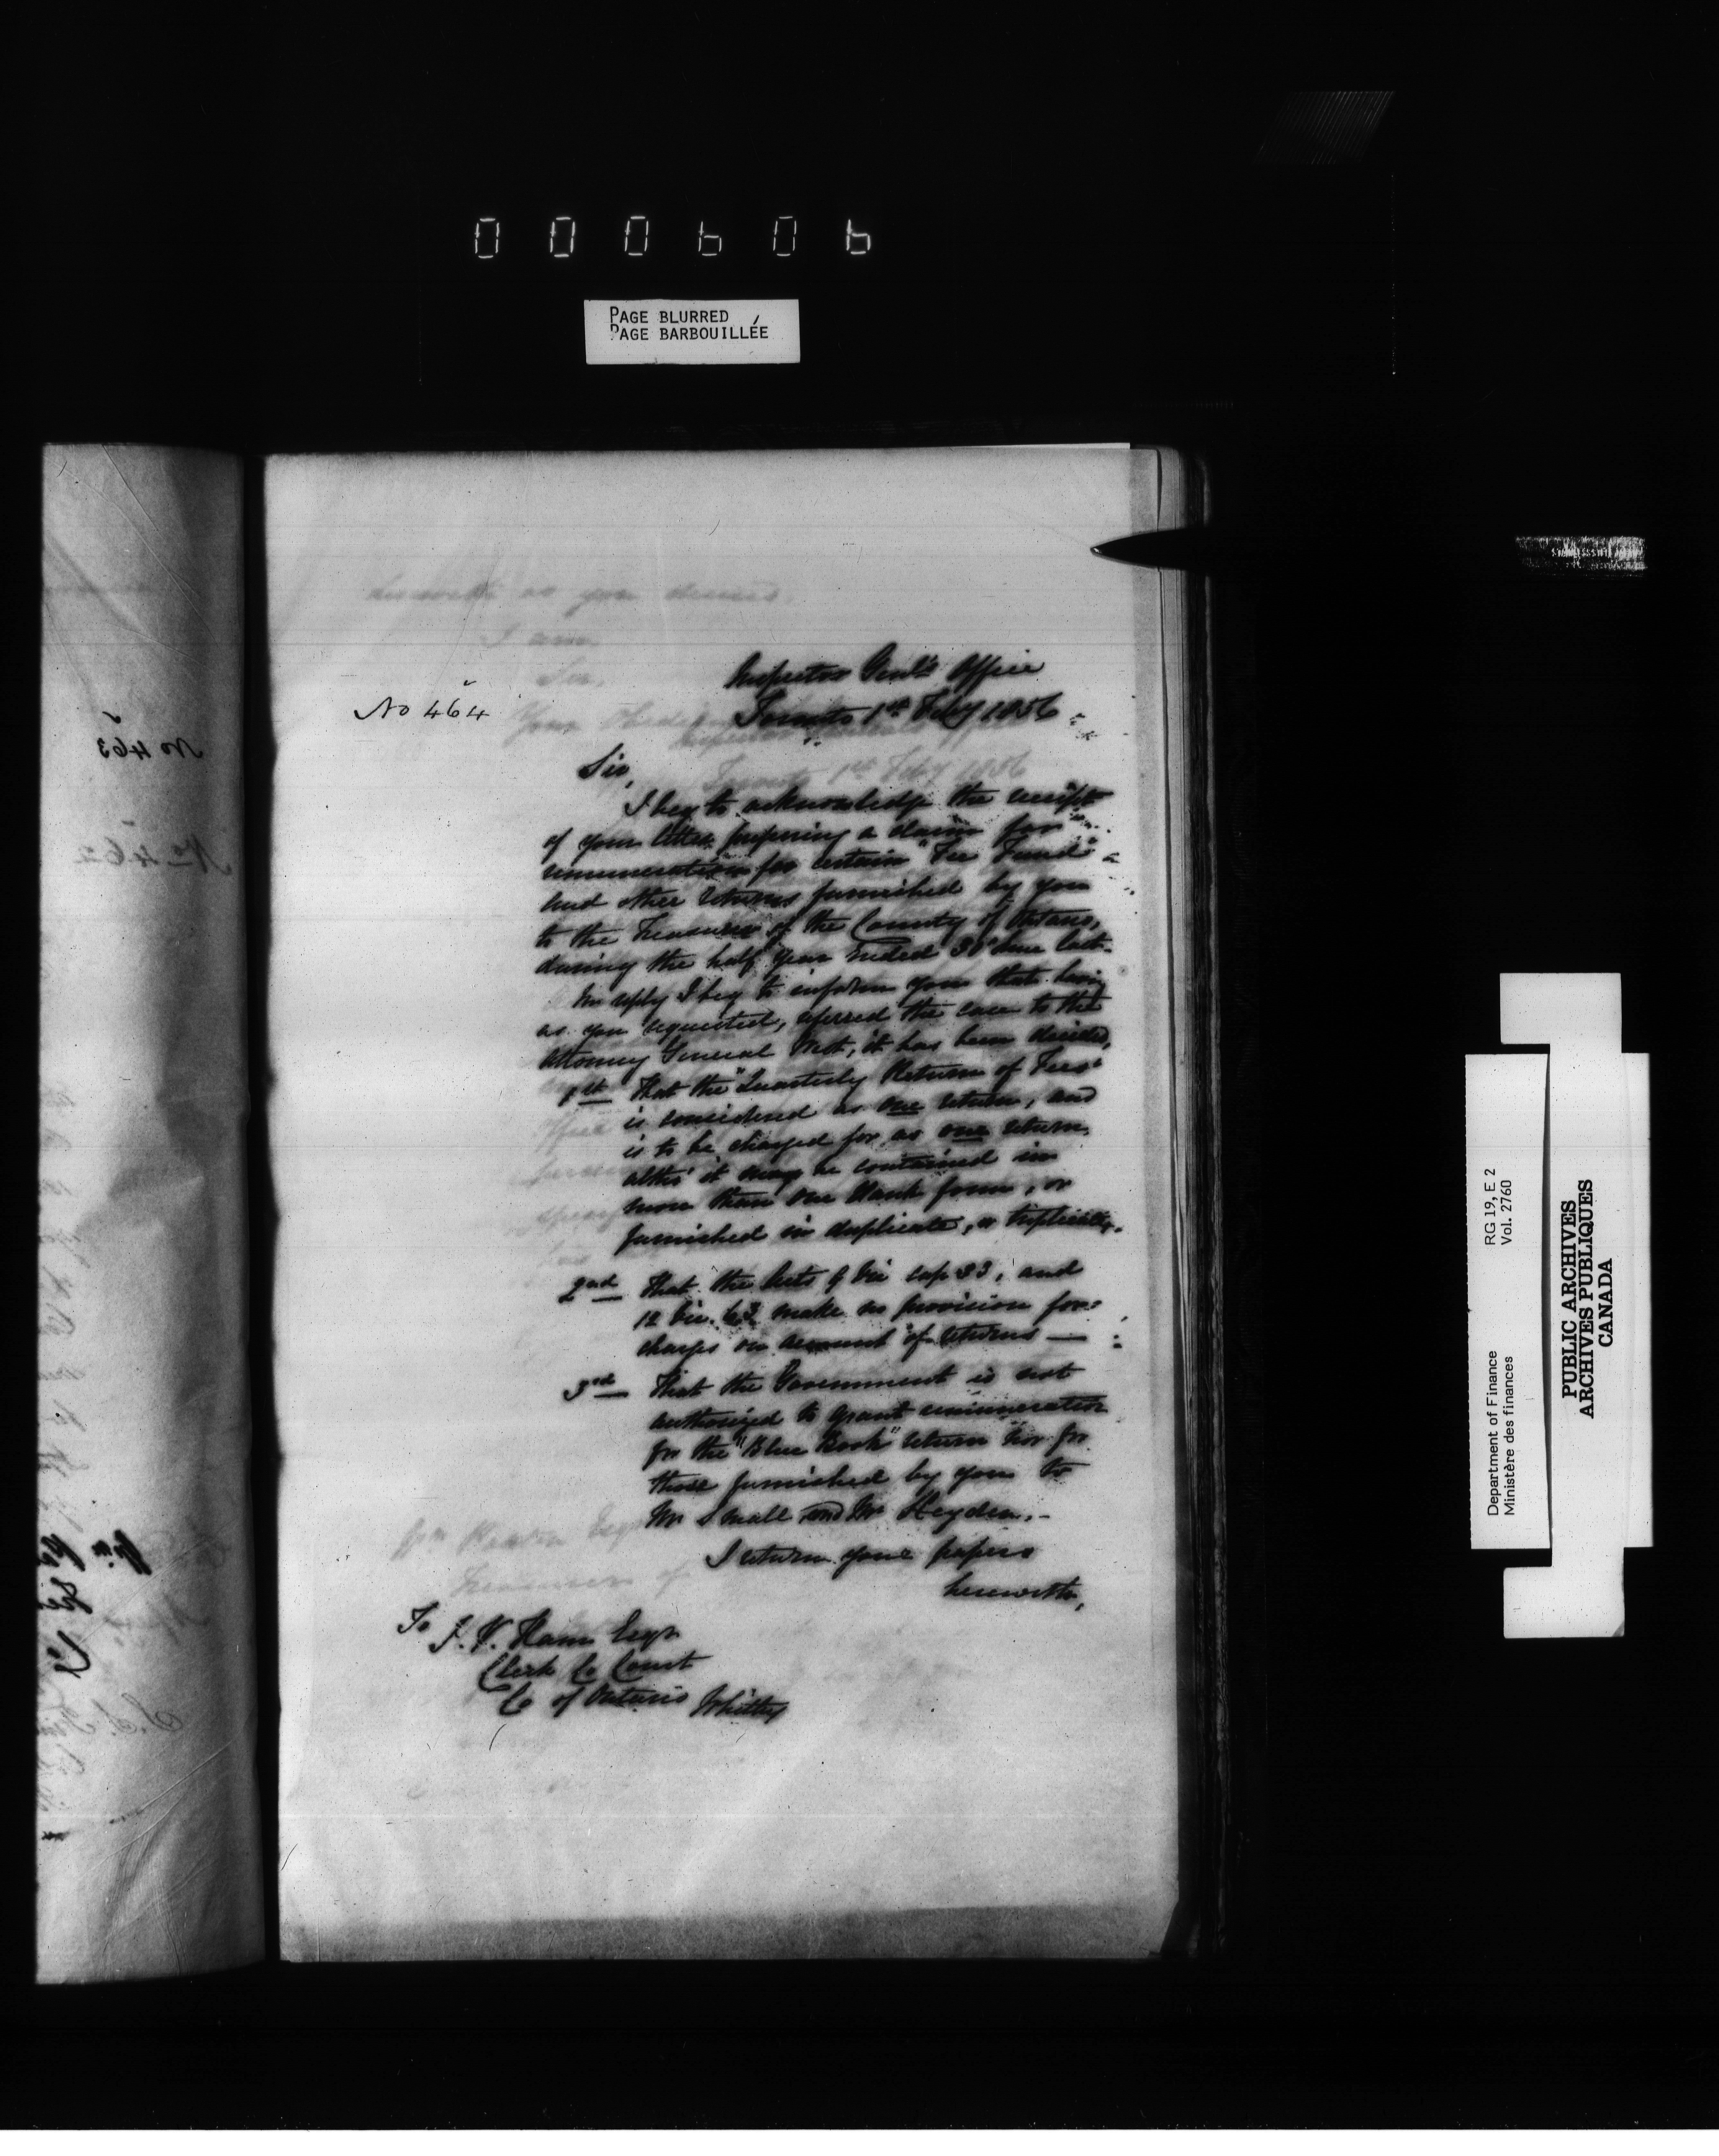 000606
PAGE BLURRED
PAGE BARBOUILLÉE
Inspector Genl's Office
Toronto 1st Feby 1856
No 464
Sir,
I beg to acknowledge the receipt
of your letter preferring a claim for
remuneration for certain "Fee Fund"
and other returns furnished by you
to the Treasurer of the County of Ontario,
during the half year ended 30 June last.
In reply I beg to inform you that having
as you requested, referred the case to the
Attorney General West, it has been decided,
1st That the "Quarterly Return of Fees"
is considered as one return, and
is to be charged for as one return,
altho' it may be contained in
more than one blank form, or
furnished in duplicate, or triplicate,
2nd That the Acts 9 Vic cap 33, and
12 Vic. 63 make no provision for
charges on account of returns —
3rd That the Government is not
authorized to grant remuneration
for the "Blue Book" return nor for
those furnished by you to
Mr Small and Mr Heyden. -
I return your papers
herewith,
To J. V. Ham Esqr
Clerk Co Court
Co of Ontario Whitby
No 463
No 462
RG 19, E 2
Vol. 2760
Department of Finance
Ministère des finances
PUBLIC ARCHIVES
ARCHIVES PUBLIQUES
CANADA